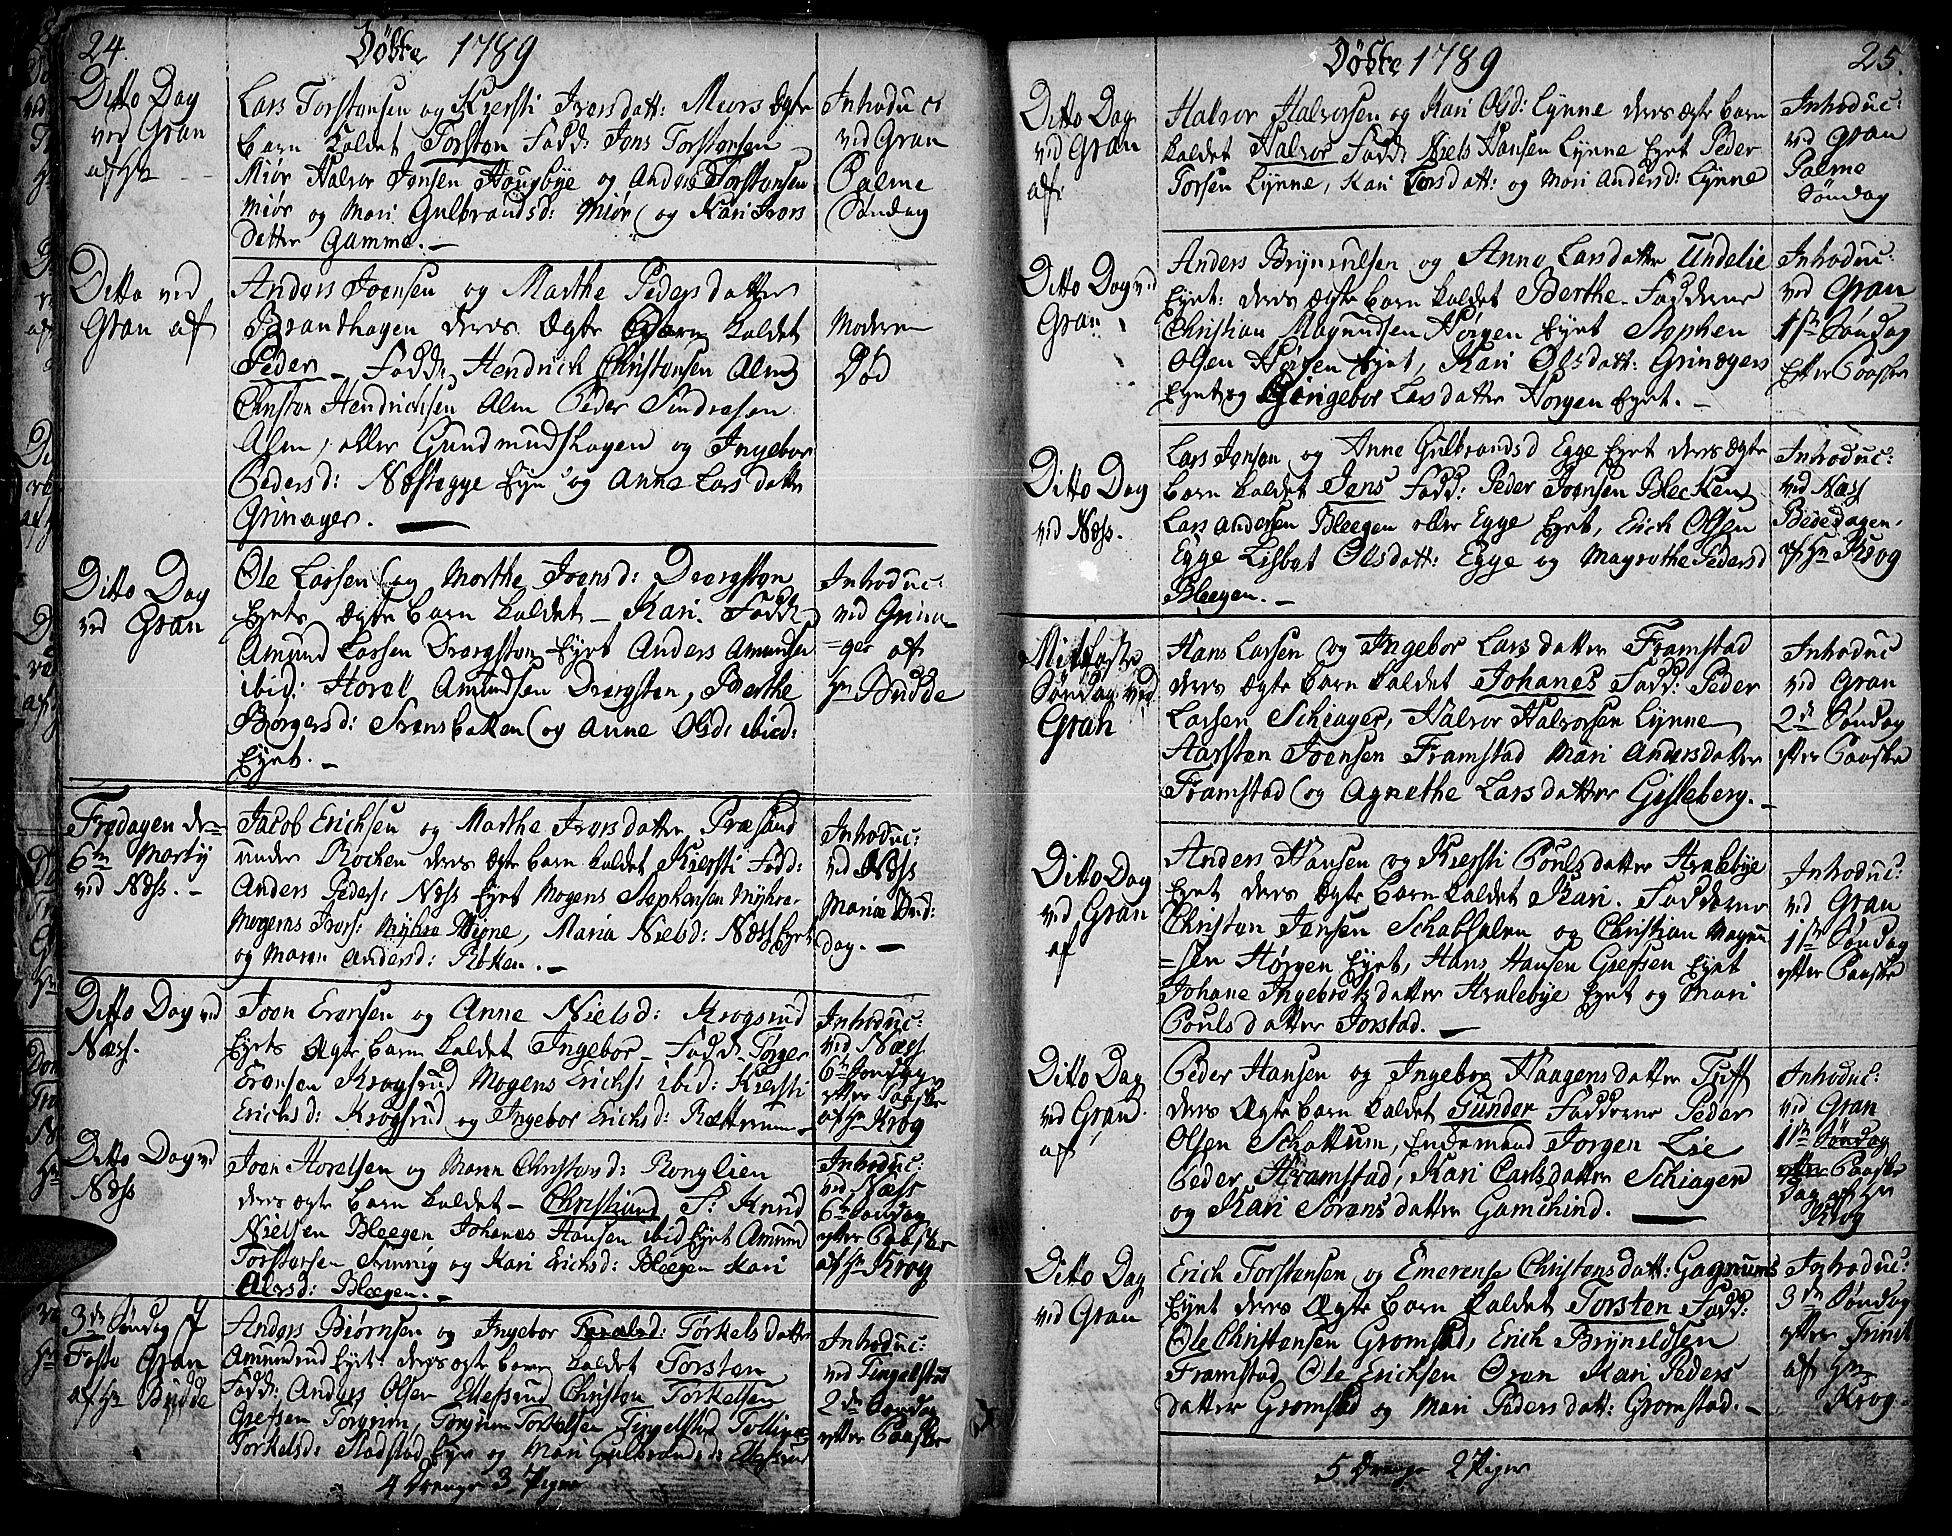 24.
Döbte 1789
Ditto Dag
ved Gran
af Hr
Lars Torstensen og Kiersti Iversdatt: Miørs Ægte
barn kaldet Torsten Fadd: Jens Torstensen
Miør Halvor Jensen Hougbye og Anders Torstensen
Miør og Mari Gulbrandsd: Miør og Kari Ivers
datter Gamme.
Introduc:
ved Gran
Palme
Søndag
Ditto ved
Gran af
Anders Joensen og Marthe Peders datter
Brandhagen deres Ægte Barn kaldet
Peder Fadd: Hendrich Christensen Alm
Christen Hendrichsen Alm Peder Sindresen
Alm, eller Gundmudshagen og Ingebor
Pedersd: Næstegge Eyet og Anne Lars datter
Grinager.
Moderen
Død
Ditto Dag
ved Gran
Ole Larsen og Marthe Joensd: Drægsten
Eyets Ægte barn kaldet Kari. Fadd
Amund Larsen Drægsten Eyet Anders Amundsen
ibid: Horel Amundsen Drægsten, Berthe
Borgersd: Trænsbakken og Anne Olsd: ibid:
Eyet.
Introduc:
ved Grina-
ger af
Hr Budde
Fredagen den
6te Martij
ved Næss.
Jacob Erichsen og Marthe Iversdatter Præsand
under Rochen deres Ægte barn kaldet Kiersti Fadd:
Anders Peders: Næss Eyet Mogens Stephensen Myhre
Mogens Ivers: Myhre Vigne, Maria Nielsd: Næss Eyet
og Maren Andersd: Røken.
Introduc:
ved Næss
Mariæ Bud:
dag.
Ditto Dag ved
Næss.
Joen Evensen og Anne Nielsd: Krogsrud
Eyets Ægte barn kaldet Ingebor Fadd Torger
Evensen Krogsrud Mogens Erichs: ibid: Kiersti
Erichsd: Krogsrud og Ingebor Erichsd: Rættrum
Introduc:
ved Næss
6te Søndag
efter Paaske
af Hr Krog
Ditto Dag ved
Næss
Joen Horelsen og Maren Christensd: Ronglien
deres ægte barn kaldet Christiand F: Knud
Nielsen Bleegen Johanes Hansen ibid Eyet Amund
Torstensen og Kari Erichsd: Bleegen Kari
Bleegen.
Introduc:
ved Næss
6te Søndag
efter Paaske
af Hr Krog
3de Søndag i
Faste Gran
af Hr Budde
Anders Biørnsen og Ingebor Torkels datter
Amundrud Eyet deres ægte barn kaldet Torsten
Fadd: Anders Olsen Ellefsrud Christen Torkelsen
Grefsen Torgrim, Torgrim Torkelsen Tingelstad
Torkelsd: Eyet og Mari Gulbrandsd: Ellefsrud
Introduc:
ved Tingelstad
2den Søndag
efter Paaske
4 Drenge 3 Piger
Döbte 1789
25.
Ditto Dag
ved Gran
af
Halvor Halvorsen og Kari Olsd: Lynne deres ægte barn
kaldet Halvor Fadd: Niels Hansen Lynne Eyet Peder
Torsen Lynne, Kari Torsdatt: og Mari Andersd: Lynne
Introduc:
ved Gran
Palme
Søndag
Ditto Dag ved
Gran
Anders Brynnilsen og Anne Larsdatter Undelie
Eyet: deres Ægte barn kaldet Berthe. Fadderne
Christian Magnudsen Hørgen Eyet Stephen
Olsen Hørgen Eyet, Kari Olsdatt: Grinagers
Eyet og Gingebor Lars datter Horgen Eyet.
Introduc:
ved Gran
1ste Søndag
Efter Paaske
Ditto Dag
ved Næss.
Lars Jensen og Anne Gulbrandsd Egge Eyet deres ægte
barn kaldet Jens Fadd: Peder Joensen Blecken
Lars Andersen Bleegen eller Egge Eyet, Erich Olsen
Egge Lisbet Olsdatt: Egge og Magrethe Pedersd
Bleegen.
Introduc:
ved Næss
Bededagen
af Hr Krog
Mitfaste
Søndag ved
Gran
Hans Larsen og Ingebor Lars datter Framstad
deres Ægte barn kaldet Johanes Fadd: Peder
Larsen Schiager, Halvor Halvorsen Lynne
Aarsten Joensen Framstad Mari Andersdatter
Framstad og Agnethe Lars datter Gisleberg.
Introduc
ved Gran
2de Søndag
efter Paaske
Ditto Dag
ved Gran
af
Anders Hansen og Kiersti Poulsdatter Hvalebye
Eyet deres Ægte barn kaldet Kari. Fadderne
Christen Jensen Schabsalen og Christian Magnu
=sen Hørgen Eyet, Hans Hansen Grefsen Eyet
Johane Ingebretsdatter Hvalebye Eyet og Mari
Pouls datter Jorstad.
Introduc:
ved Gran
1ste Søndag
efter Paaske
Ditto Dag
ved Grand.
af
Peder Hansen og Ingebor Haagensdatter Tuff
deres Ægte barn kaldet Gunder Fadderne Peder
Olsen Schattum, Jorgen Lie
Peder Framstad, Kari Carlsdatter Schiager
og Kari Sørens datter Gamchind.
Introduc:
ved Gran
1ste Søndag
efter Paaske
Dag af Hr
Krog
Ditto Dag
ved Gran
Erich Torstensen og Emerense Christensdatt: Gagnums
Eyet deres Ægte barn kaldet Torsten Fadd:
Ole Christensen Gromstad, Erich Brynildsen
Framstad Ole Erichsen Kari Peders
datter Gromstad og Mari Pedersdatt: Gromstad.
Introduc:
3de Søndag
efter Trinit
af Hr
Krog
5 Drenge 2 Piger